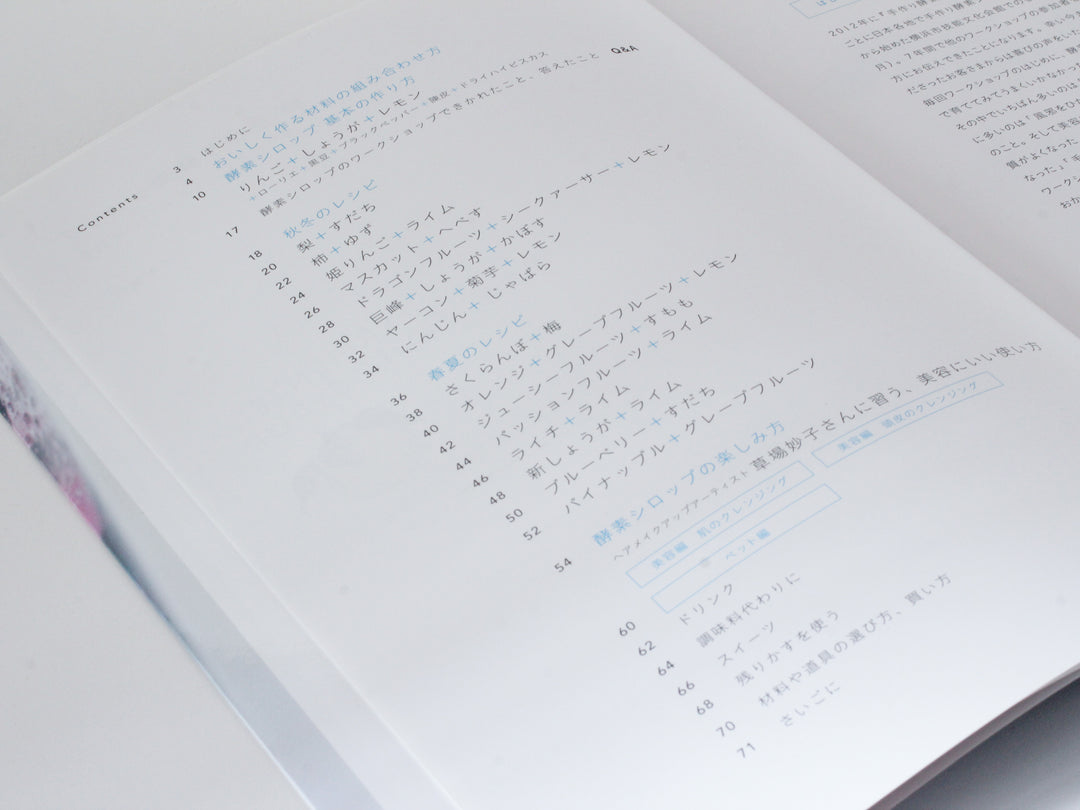 Contents
3 はじめに
4 おいしく作る材料の組み合わせ方
10 酵素シロップ 基本の作り方
りんご+しょうが+レモン
+ローリエ+黒豆+ブラックペッパー+陳皮+ドライハイビスカス
17 酵素シロップのワークショップできかれたこと、答えたこと Q&A
18 秋冬のレシピ
20 梨+すだち
22 柿+ゆず
24 姫りんご+ライム
26 マスカット+へべす
28 ドラゴンフルーツ+シークァーサー+レモン
30 巨峰+しょうが+かぼす
32 ヤーコン+菊芋+レモン
34 にんじん+じゃばら
36 春夏のレシピ
38 さくらんぼ+梅
40 オレンジ+グレープフルーツ+レモン
42 ジューシーフルーツ+すもも
44 パッションフルーツ+ライム
46 ライチ+ライム
48 新しょうが+ライム
50 ブルーベリー+すだち
52 パイナップル+グレープフルーツ
54 酵素シロップの楽しみ方
ヘアメイクアップアーティスト 草場妙子さんに習う、美容にいい使い方
美容編 肌のクレンジング 美容編 頭皮のクレンジング
60 ペット編
62 ドリンク
64 調味料代わりに
66 スイーツ
68 残りかすを使う
70 材料や道具の選び方、買い方
71 さいごに
2012年に『手作り酵素
ごとに日本各地で手作り酵素
から始めた横浜市技能文化会館での
月)。7年間で他のワークショップの参加者
方にお伝えできたことになります。幸い今ま
ださったお客さまからは喜びの声をいた
毎回ワークショップのはじめに、酵
で育ててみてうまくいかなかった
その中でいちばん多いのは
に多いのは「風邪をひ
のこと。そして美容
質がよくなった
なった」「手
ワークシ
おか